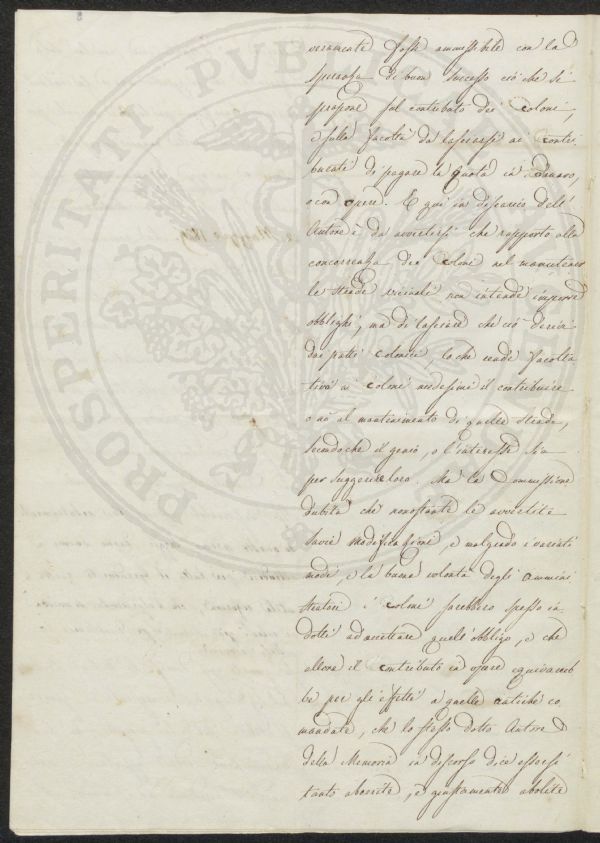 PROSPERITATI PUBLICAE
veramente fosse ammissibile con la
speranza di buon successo ciò che si
propone sul contributo dei Coloni,
e sulla facoltà da lasciarsi ai Contri
buenti di pagare la quota in denaro,
o con opere. E qui in discarico dell'
Autore è da avvertirsi che rapporto alla
concorrenza dei Coloni nel mantenere
le Strade vicinali non intende imporre
obblighi, ma di lasciare che ciò derivi
dai patti colonici, lo che rende facolta
tivo ai Coloni medesimi il contribuire
o nò al mantenimento di quelle strade,
secondo che il genio, o l'interesse sia
per suggerire loro. Ma la Commissione
dubita che nonostante le avvertite
savie modificazioni, e malgrado i variati
modi, e la buona volontà degli Ammini
stratori i Coloni sarebbero spesso in
dotti ad accettare quell'obbligo, e che
allora il contributo in opere equivareb
be per gli effetti a quelle antiche co
mandate, che lo stesso dotto Autore
della Memoria in discorso dice essersi
tanto aborrite, e giustamente abolite